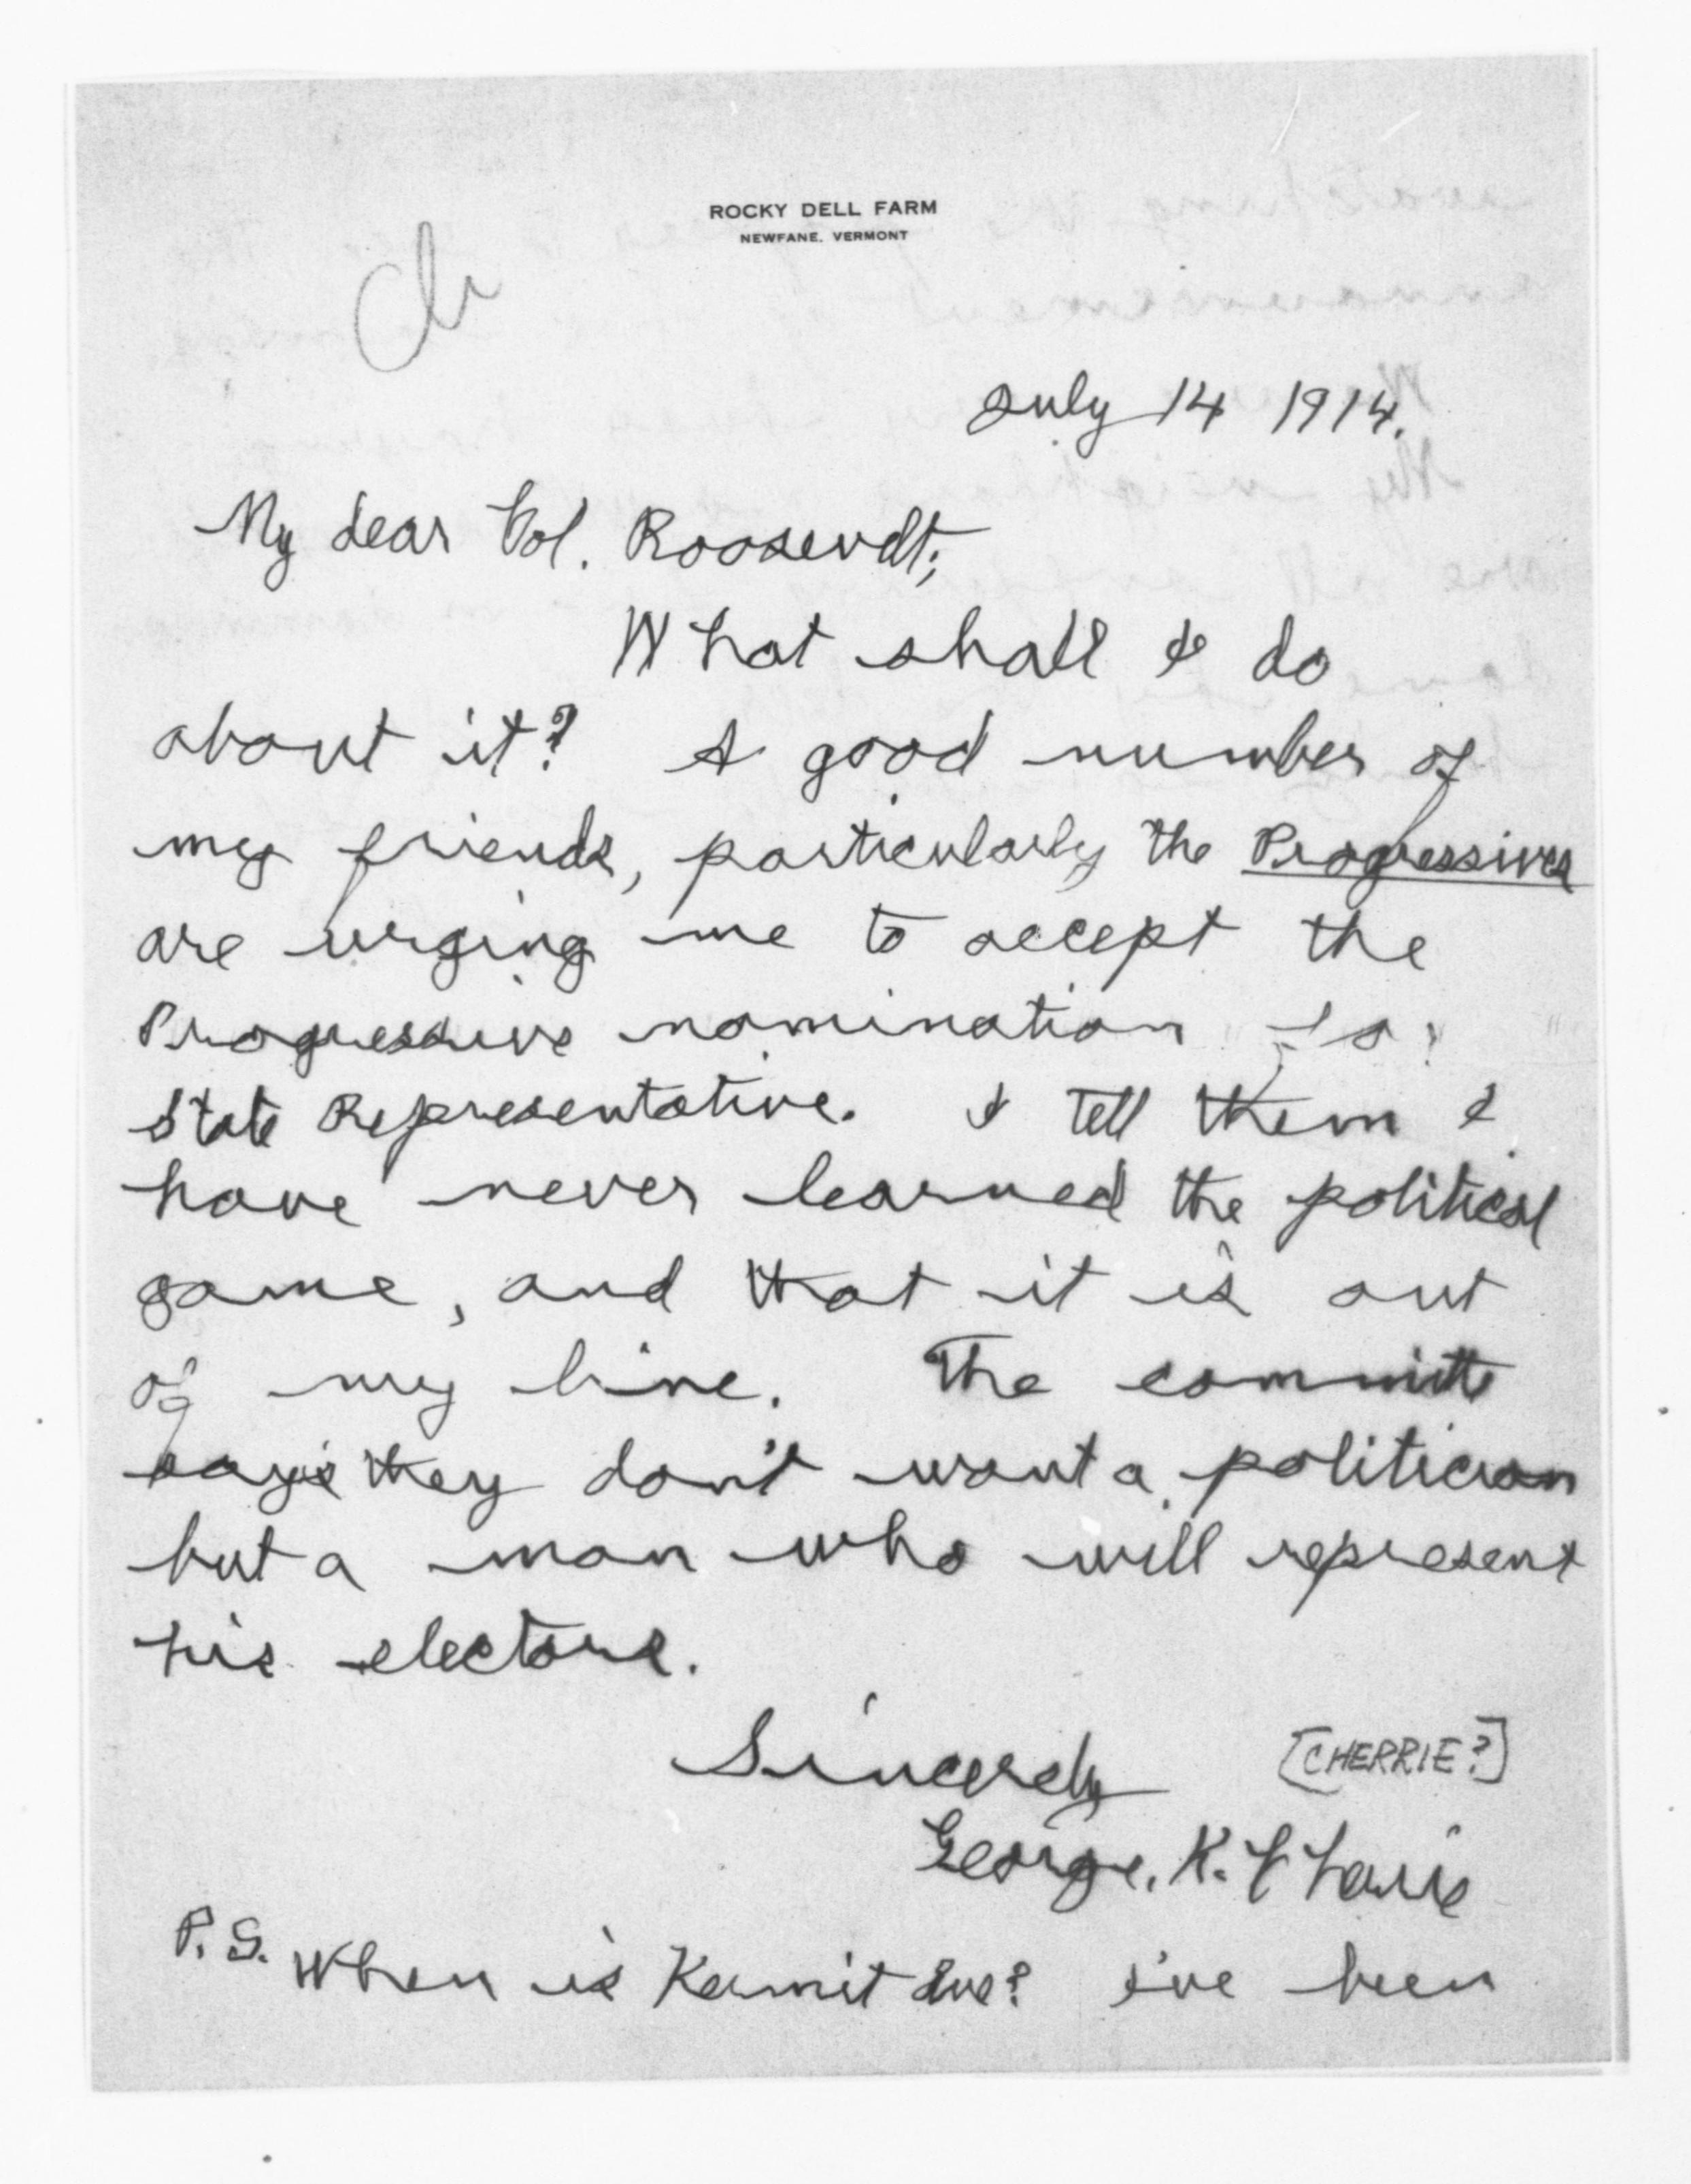 ROCKY DELL FARM
NEWFANE, VERMONT
Ch
July 14 1914.
My dear Col. Roosevelt;
What shall I do
about it? A good number of
my friends, particularly the Progressives
are urging me to accept the
Progressive nomination to
State Representative. I tell them I
have never learned the political
game, and that it is out
of my line. The committe
says they don't want a politician
but a man who will represent
his electors.
Sincerely
[CHERRIE?]
George. K. Cherrie
P.S. When is Kermit due? I've been